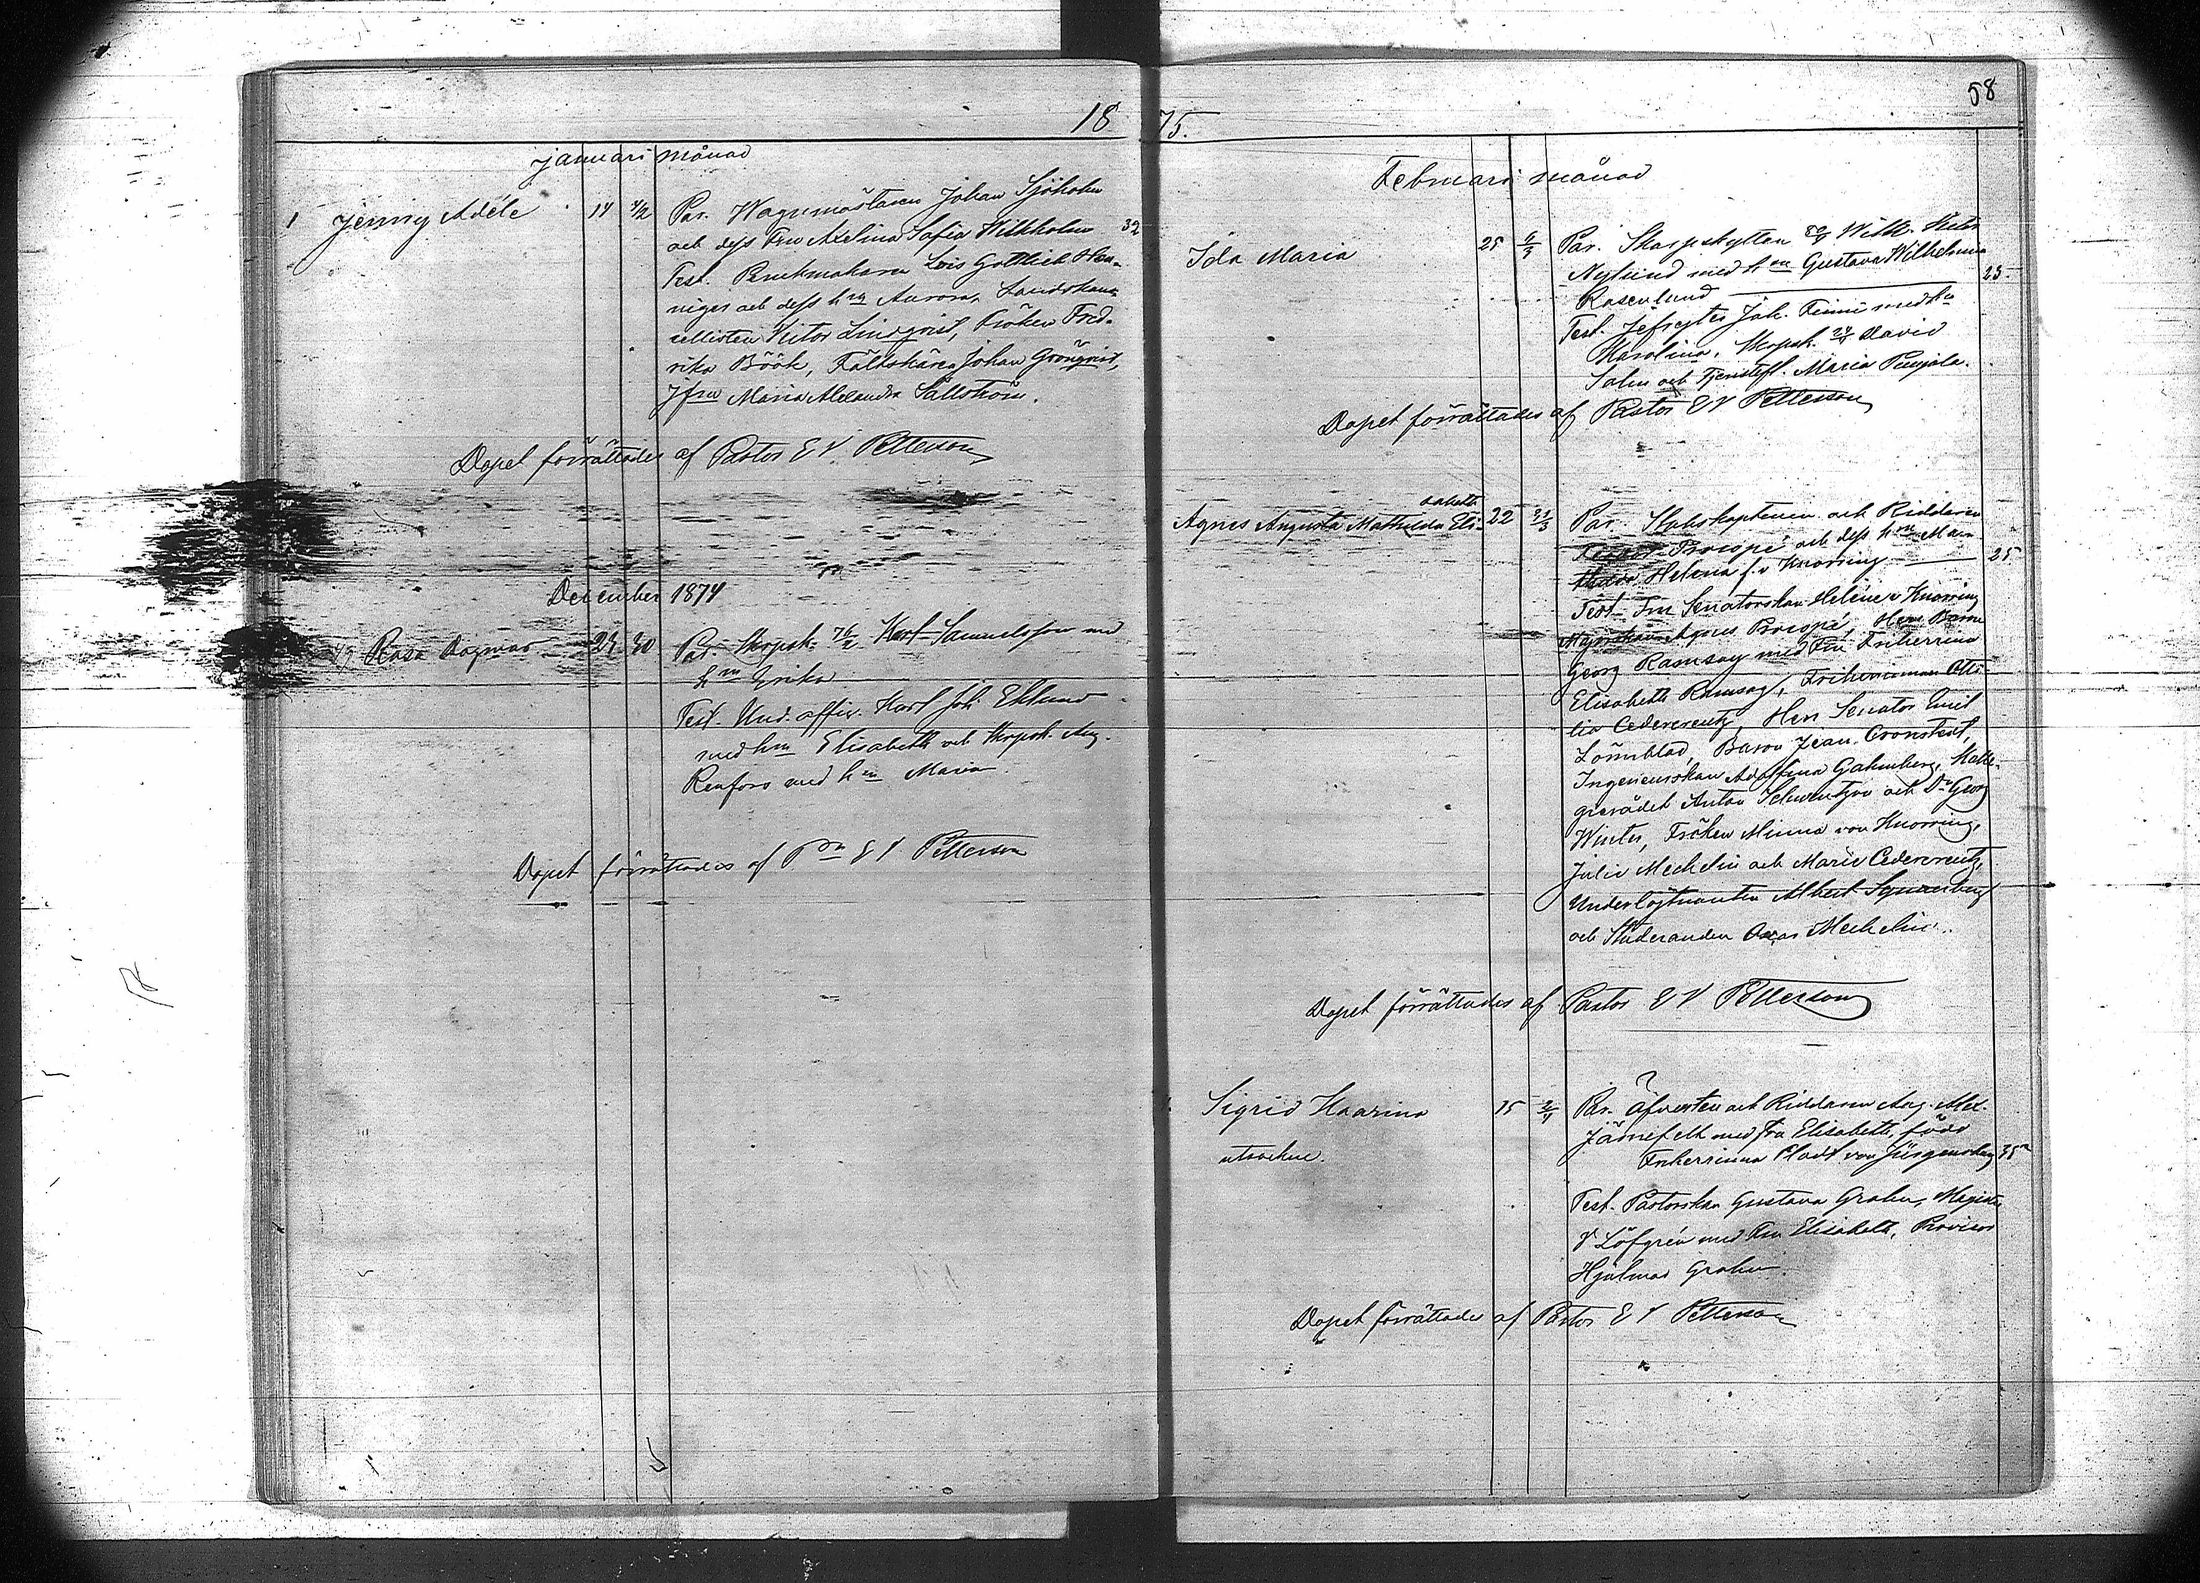 18 75.
58
Januari månad
1 Jenny Adéle 14 4/2 Par. Wagnmästaren Johan Sjöholm
och dess Fru Axelina Sofia Wilkholm 32
Test. Bruckmakaren Lois Gottlieb Hen-
niger och dess hru Aurora, Landskans-
ellisten Victor Lindqvist, Fröken Fred-
rika Böök, Fältskären Johan Grönqvist,
Jfru Maria Alexandra Sällström.
Dopet förrättades af Pastor E V Petterson
December 1874
Rosa Dagmar 29 30 Par. Skrpsk. 76/2 Karl Samuelsson med
hru Erika
Test. Und. offic. Karl Joh. Eklund
med hru Elisabeth och Skrpsk. Aug.
Renfors med hru Maria.
Dopet förrättades af Pr E V Petterson
Februari månad
Ida Maria 25 6/3 Par. Skarpskytten Wilh. Victor
Nylund med hru Gustava Wilhelmina 25.
Rosenlund
Test. Gefreyter Joh. Finni med hu
Karolina, Skrpsk. David
Salm och Tjenstefl. Maria Pinjala.
Dopet förrättades af Pastor E V Petterson
sabeth
Agnes Augusta Mathilda Eli- 22 21/3 Par. Stabskaptenen och Riddaren
Procopé och dess hru Ma-
Helena f. v Knorring 25
Test. Fru Senatorskan Helene v Knorring
Majorskan Agnes Procopé, Herr Baron
Georg Ramsay med Fru Friherrinna
Elisabeth Ramsay, Friherrinnan Otti-
lia Cedercreutz, Herr Senator Emil
Lönnblad, Baron Jean Cronstedt,
Ingenieurskan Adolfina Gahmberg, Kolle-
gierådet Anton Schwentzon och Dr Georg
Winter, Fröken Minna von Knorring,
Julie Mechelin och Marie Cedercreutz,
Underlöjtnanten Albert
och Studeranden Oscar Mechelin.
Dopet förrättades af Pastor E V Petterson
Sigrid Kaarina 15 2/4 Par. Öfversten och Riddaren Aug. Alex.
Järnefelt med fru Elisabeth, född
utsocknes. Friherrinna Clodt von Jürgensburg 35
Test. Pastorskan Gustava Grahn, Magister
V Löfgrén med Fru Elisabeth, Provisor
Hjalmar Grahn.
Dopet förrättades af Pastor E V Petterson